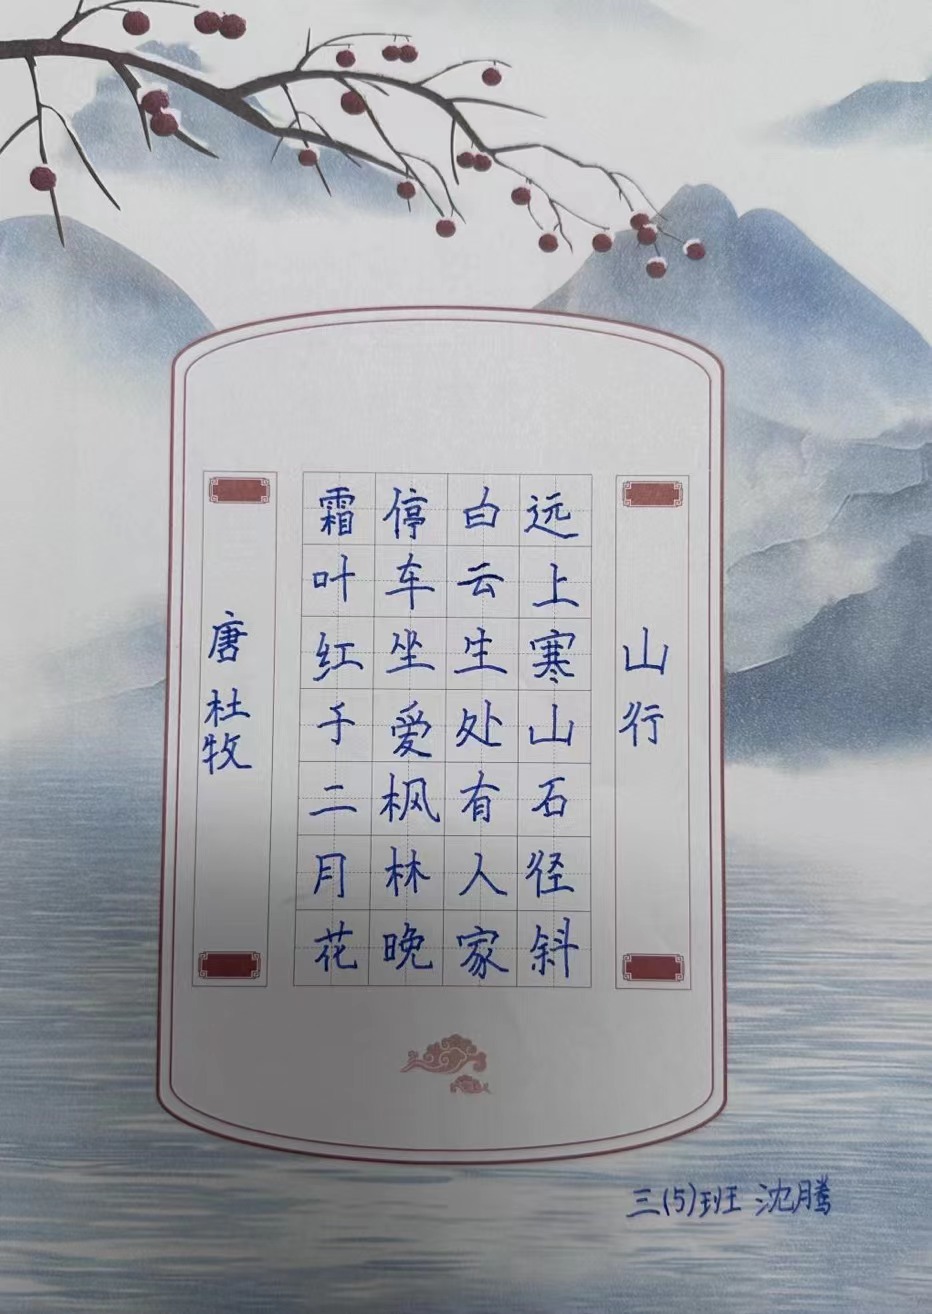 山行
远上寒山石径斜
白云生处有人家
停车坐爱枫林晚
霜叶红于二月花
唐 杜牧
三(5)班 沈腾